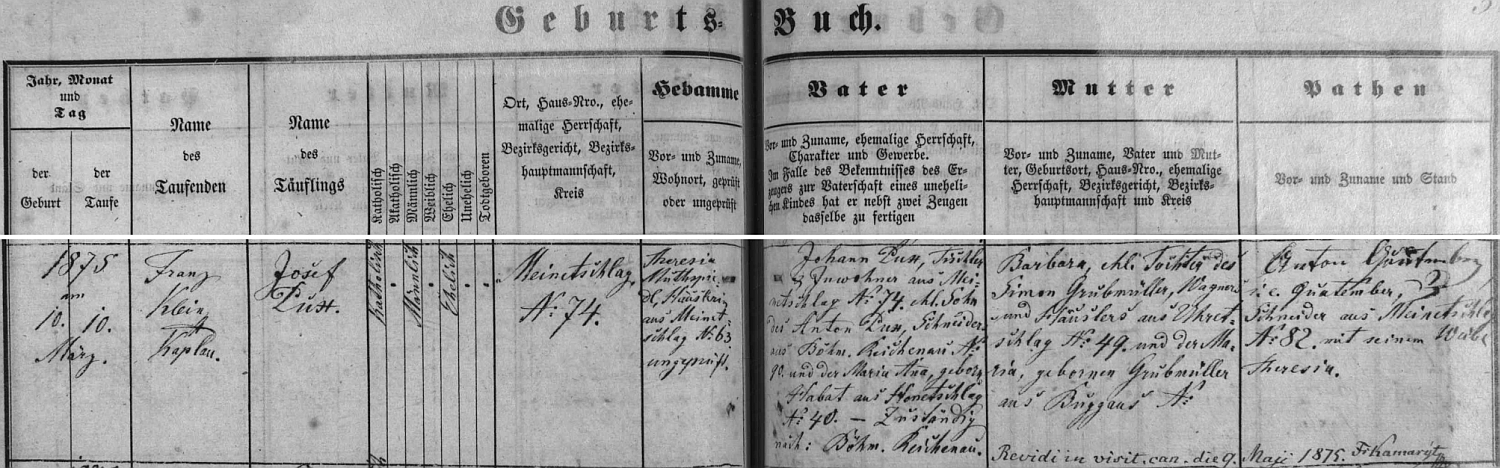 Geburts-Buch.
Jahr, Monat
und
Tag
der
Geburt
der
Taufe
Name
des
Taufenden
Name
des
Täuflings
Katholisch
Akatholisch
Männlich
Weiblich
Ehelich
Unehelich
Todtgeboren
Ort, Haus-Nro., ehe-
malige Herrschaft,
Bezirksgericht, Bezirks-
hauptmannschaft,
Kreis
Hebamme
Vor- und Zuname,
Wohnort, geprüft
oder ungeprüft
Vater
Vor- und Zuname, ehemalige Herrschaft,
Charakter und Gewerbe.
Im Falle des Bekenntnisses des Er-
zeugers zur Vaterschaft eines uneheli-
chen Kindes hat er nebst zwei Zeugen
dasselbe zu fertigen
Mutter
Vor- und Zuname, Vater und Mut-
ter, Geburtsort, Haus-Nro., ehemalige
Herrschaft, Bezirksgericht, Bezirks-
hauptmannschaft und Kreis
Pathen
Vor- und Zuname und Stand
1875
am
10. 10.
März.
Franz
Klein
Kaplan.
Josef
Pux.
Katholisch
Männlich
Ehelich
Meinetschlag
No 74.
Theresia
aus Meinet-
schlag No 63
ungeprüft.
Johann Pux, Tischler
& Inwohner aus Mei-
netschlag No 74. ehl. Sohn
des Anton Pux, Schneider
aus Böhm. Reichenau No
90. und der Maria Anna, geborn
Habat aus Honetschlag
No 40. — Zuständig
nach: Böhm. Reichenau.
Barbara, ehl. Tochter des
Simon Grubmüller, Wagners
und Häuslers aus Uhret-
schlag No 49. und der Ma-
ria, gebornen Grubmüller
aus Buggaus No
Anton Quatember,
i. e. Quatember,
Schneider aus Meinetschlag
No 82. mit seinem Weibe
Theresia.
Revidi in visit. can. die 9. Maji 1875. Fr Kamarýt